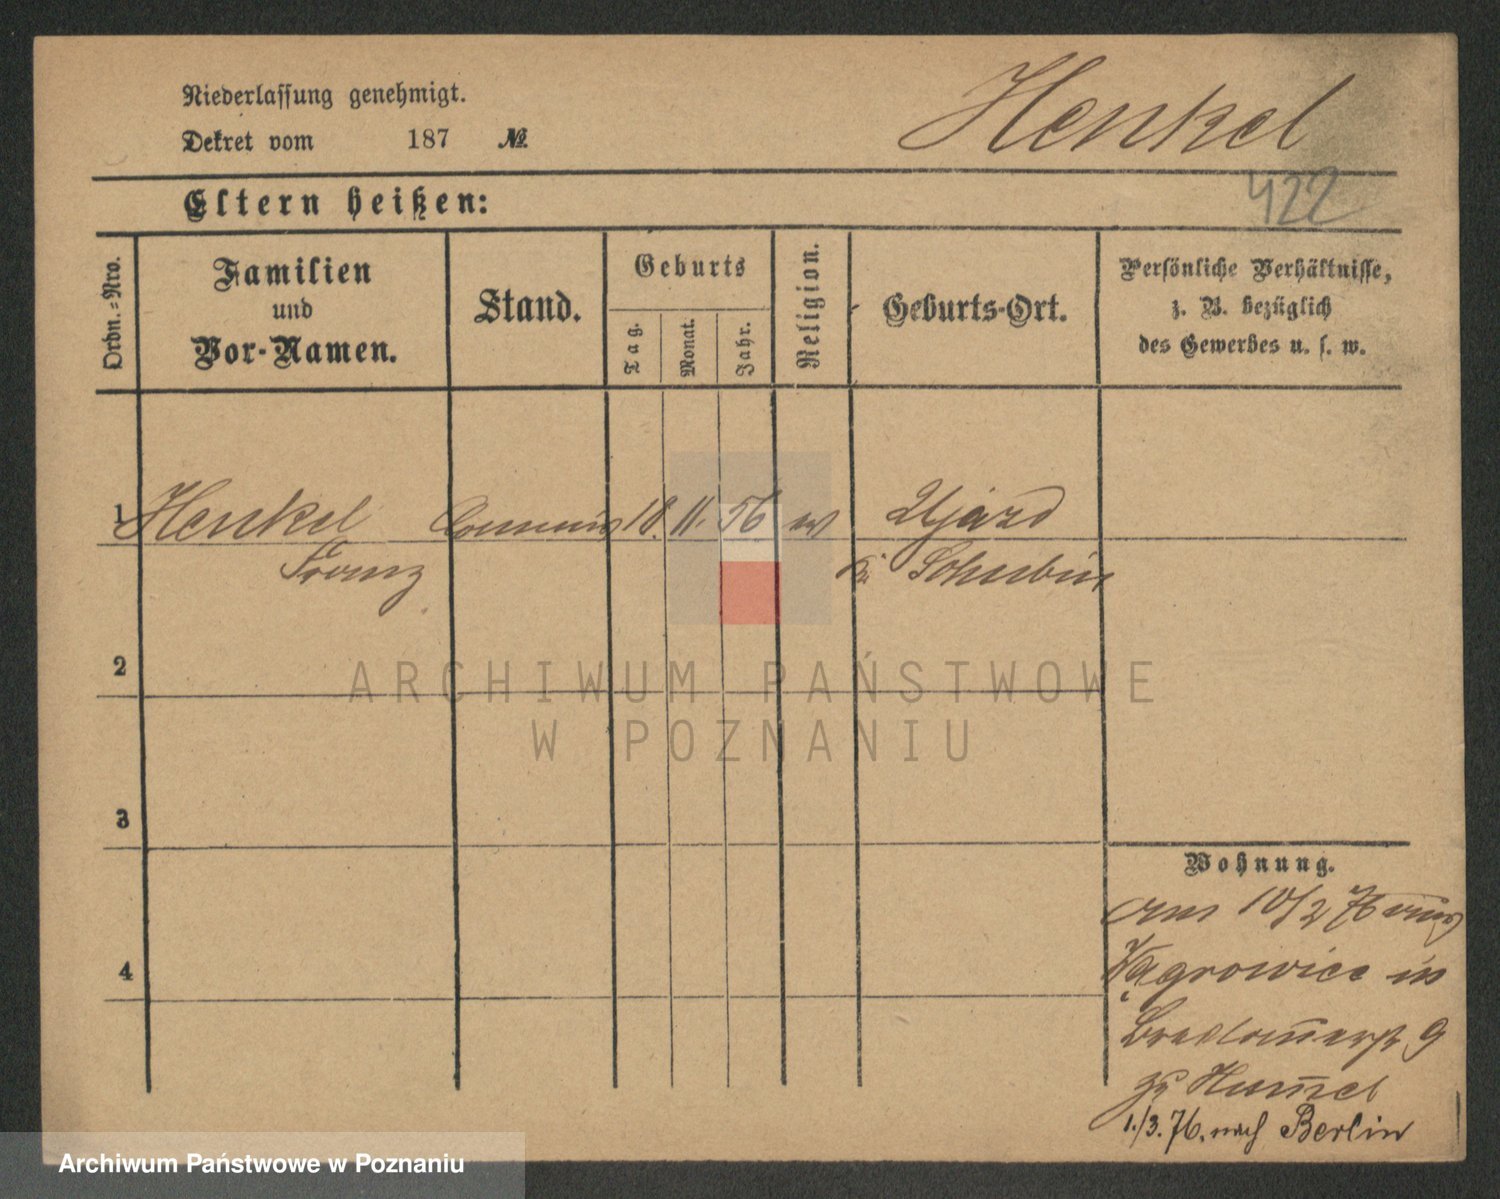 Niederlassung genehmigt.
Dekret vom 187 №
Henkel
422
Eltern heißen:
Ordn.=Nro.
Familien
und
Vor-Namen.
Stand.
Geburts
Tag.
Monat.
Jahr.
Religion.
Geburts-Ort.
Persönliche Verhältnisse,
z. B. bezüglich
des Gewerbes u. s. w.
1 Henkel Commis 18. 11. 56 ev Ujazd
Franz Kr Schubin
2
3
4
ARCHIWUM PAŃSTWOWE
W POZNANIU
Wohnung.
am 10/2 76 aus
Wągrowiec in
Breslauerstr 9
zu Hummel
1./3. 76. nach Berlin
Archiwum Państwowe w Poznaniu